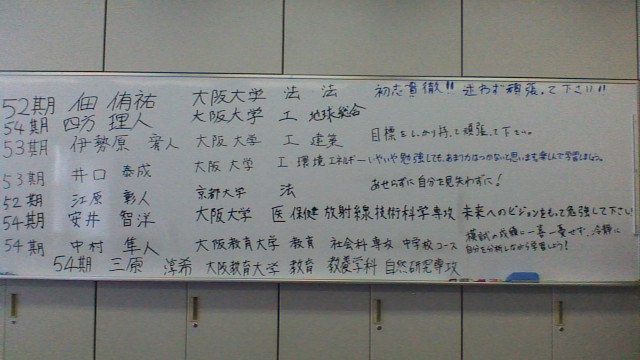 52期 佃 侑祐 大阪大学 法 法 初志貫徹!! 迷わず頑張って下さい!!
54期 四方 理人 大阪大学 工 地球総合
53期 伊勢原 大阪大学 工 建築 目標をしっかり持って頑張って下さい。
53期 井口 泰成 大阪大学 工 環境エネルギー いやいや勉強しても、あまり力はつかないと思います。楽しんで学習しましょう。
52期 江原 彰人 京都大学 法 あせらずに自分を見失わずに!
54期 安井 智洋 大阪大学 医 保健 放射線技術科学専攻 未来へのビジョンをもって勉強して下さい
54期 中村 隼人 大阪教育大学 教育 社会科専攻 中学校コース 模試の成績に一喜一憂せず、冷静に
自分を分析しながら学習しよう!
54期 三原 淳希 大阪教育大学 教育 教養学科 自然研究専攻